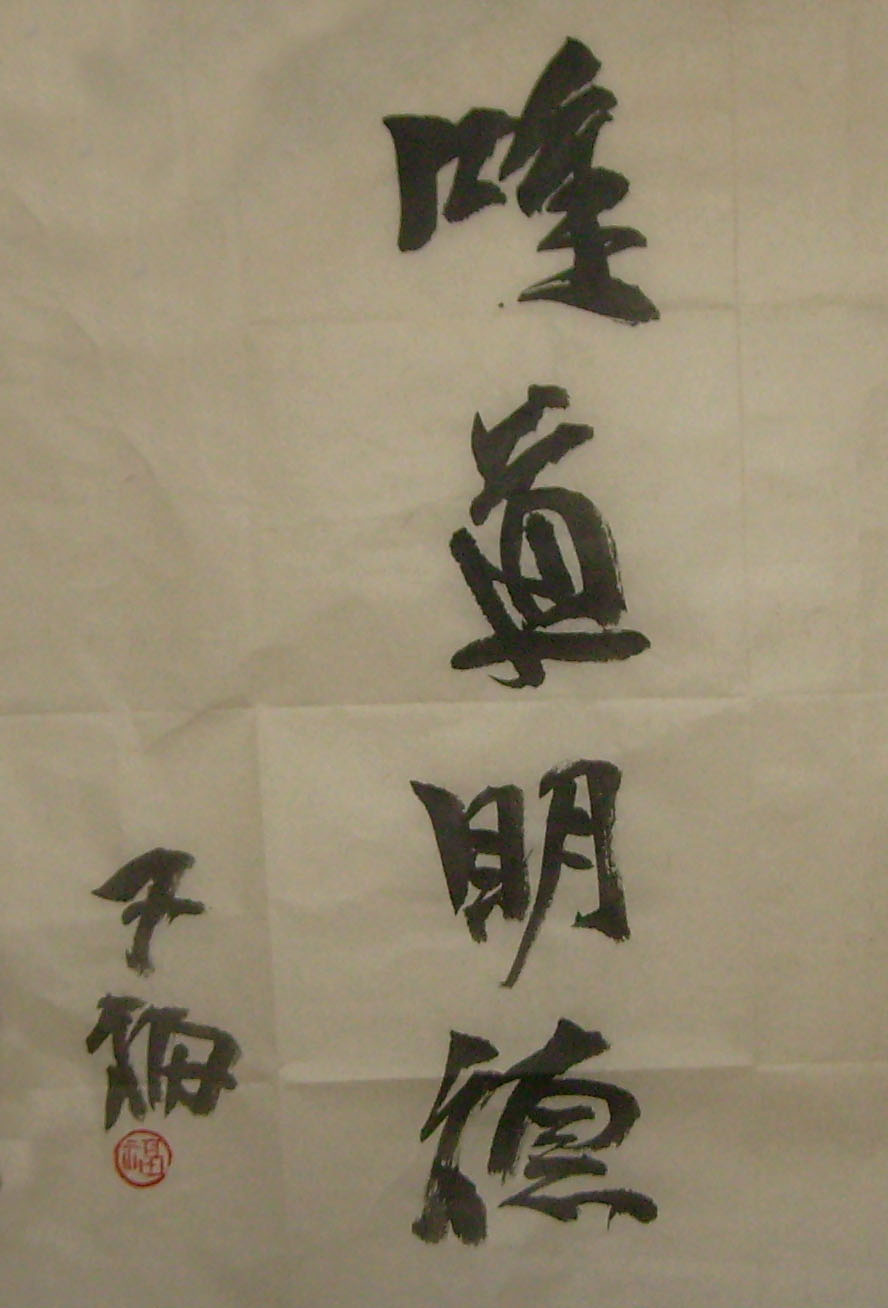 唯真明德
子